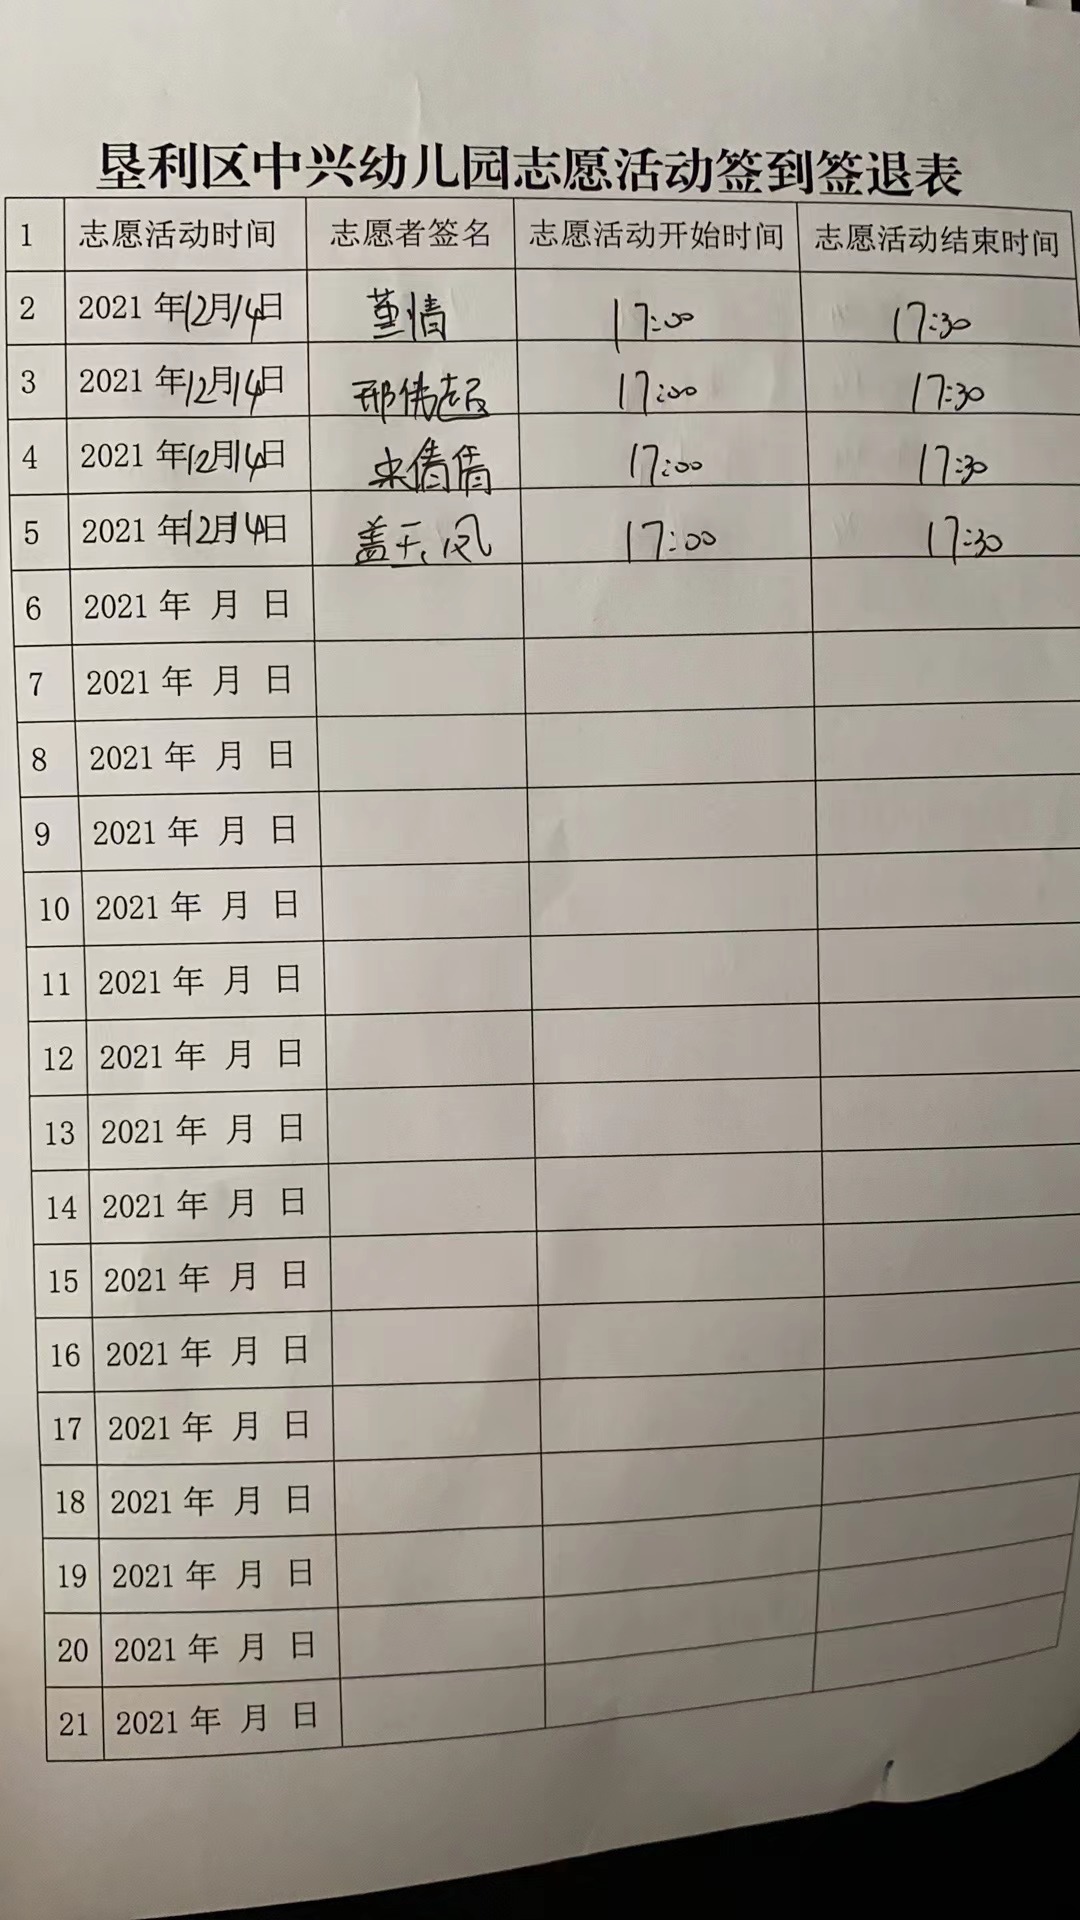 垦利区中兴幼儿园志愿活动签到签退表
1 志愿活动时间 志愿者签名 志愿活动开始时间 志愿活动结束时间
2 2021 年12月14日 董情 17:00 17:30
3 2021 年12月14日 邢伟超 17:00 17:30
4 2021 年12月14日 倩倩 17:00 17:30
5 2021 年12月14日 盖玉凤 17:00 17:30
6 2021 年 月 日
7 2021 年 月 日
8 2021 年 月 日
9 2021 年 月 日
10 2021 年 月 日
11 2021 年 月 日
12 2021 年 月 日
13 2021 年 月 日
14 2021 年 月 日
15 2021 年 月 日
16 2021 年 月 日
17 2021 年 月 日
18 2021 年 月 日
19 2021 年 月 日
20 2021 年 月 日
21 2021 年 月 日